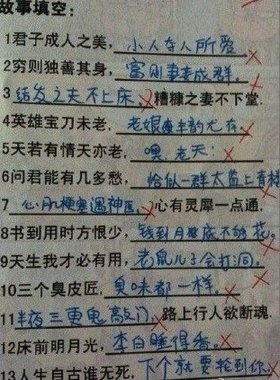 故事填空:
1君子成人之美,小人夺人所爱
2穷则独善其身,富则妻妾成群.
3结发之夫不上床,糟糠之妻不下堂.
4英雄宝刀未老.老娘风韵尤存.
5天若有情天亦老,噢.老天!
6问君能有几多愁,恰似一群太监上青楼
7心肌梗塞遇神医,心有灵犀一点通.
8书到用时方恨少,钱到月底不够花。
9天生我才必有用,老鼠儿子会打洞.
10三个臭皮匠,臭味都一样.
11半夜三更鬼敲门、路上行人欲断魂.
12床前明月光,李白睡得香.
13人生自古谁无死,下个就要轮到你